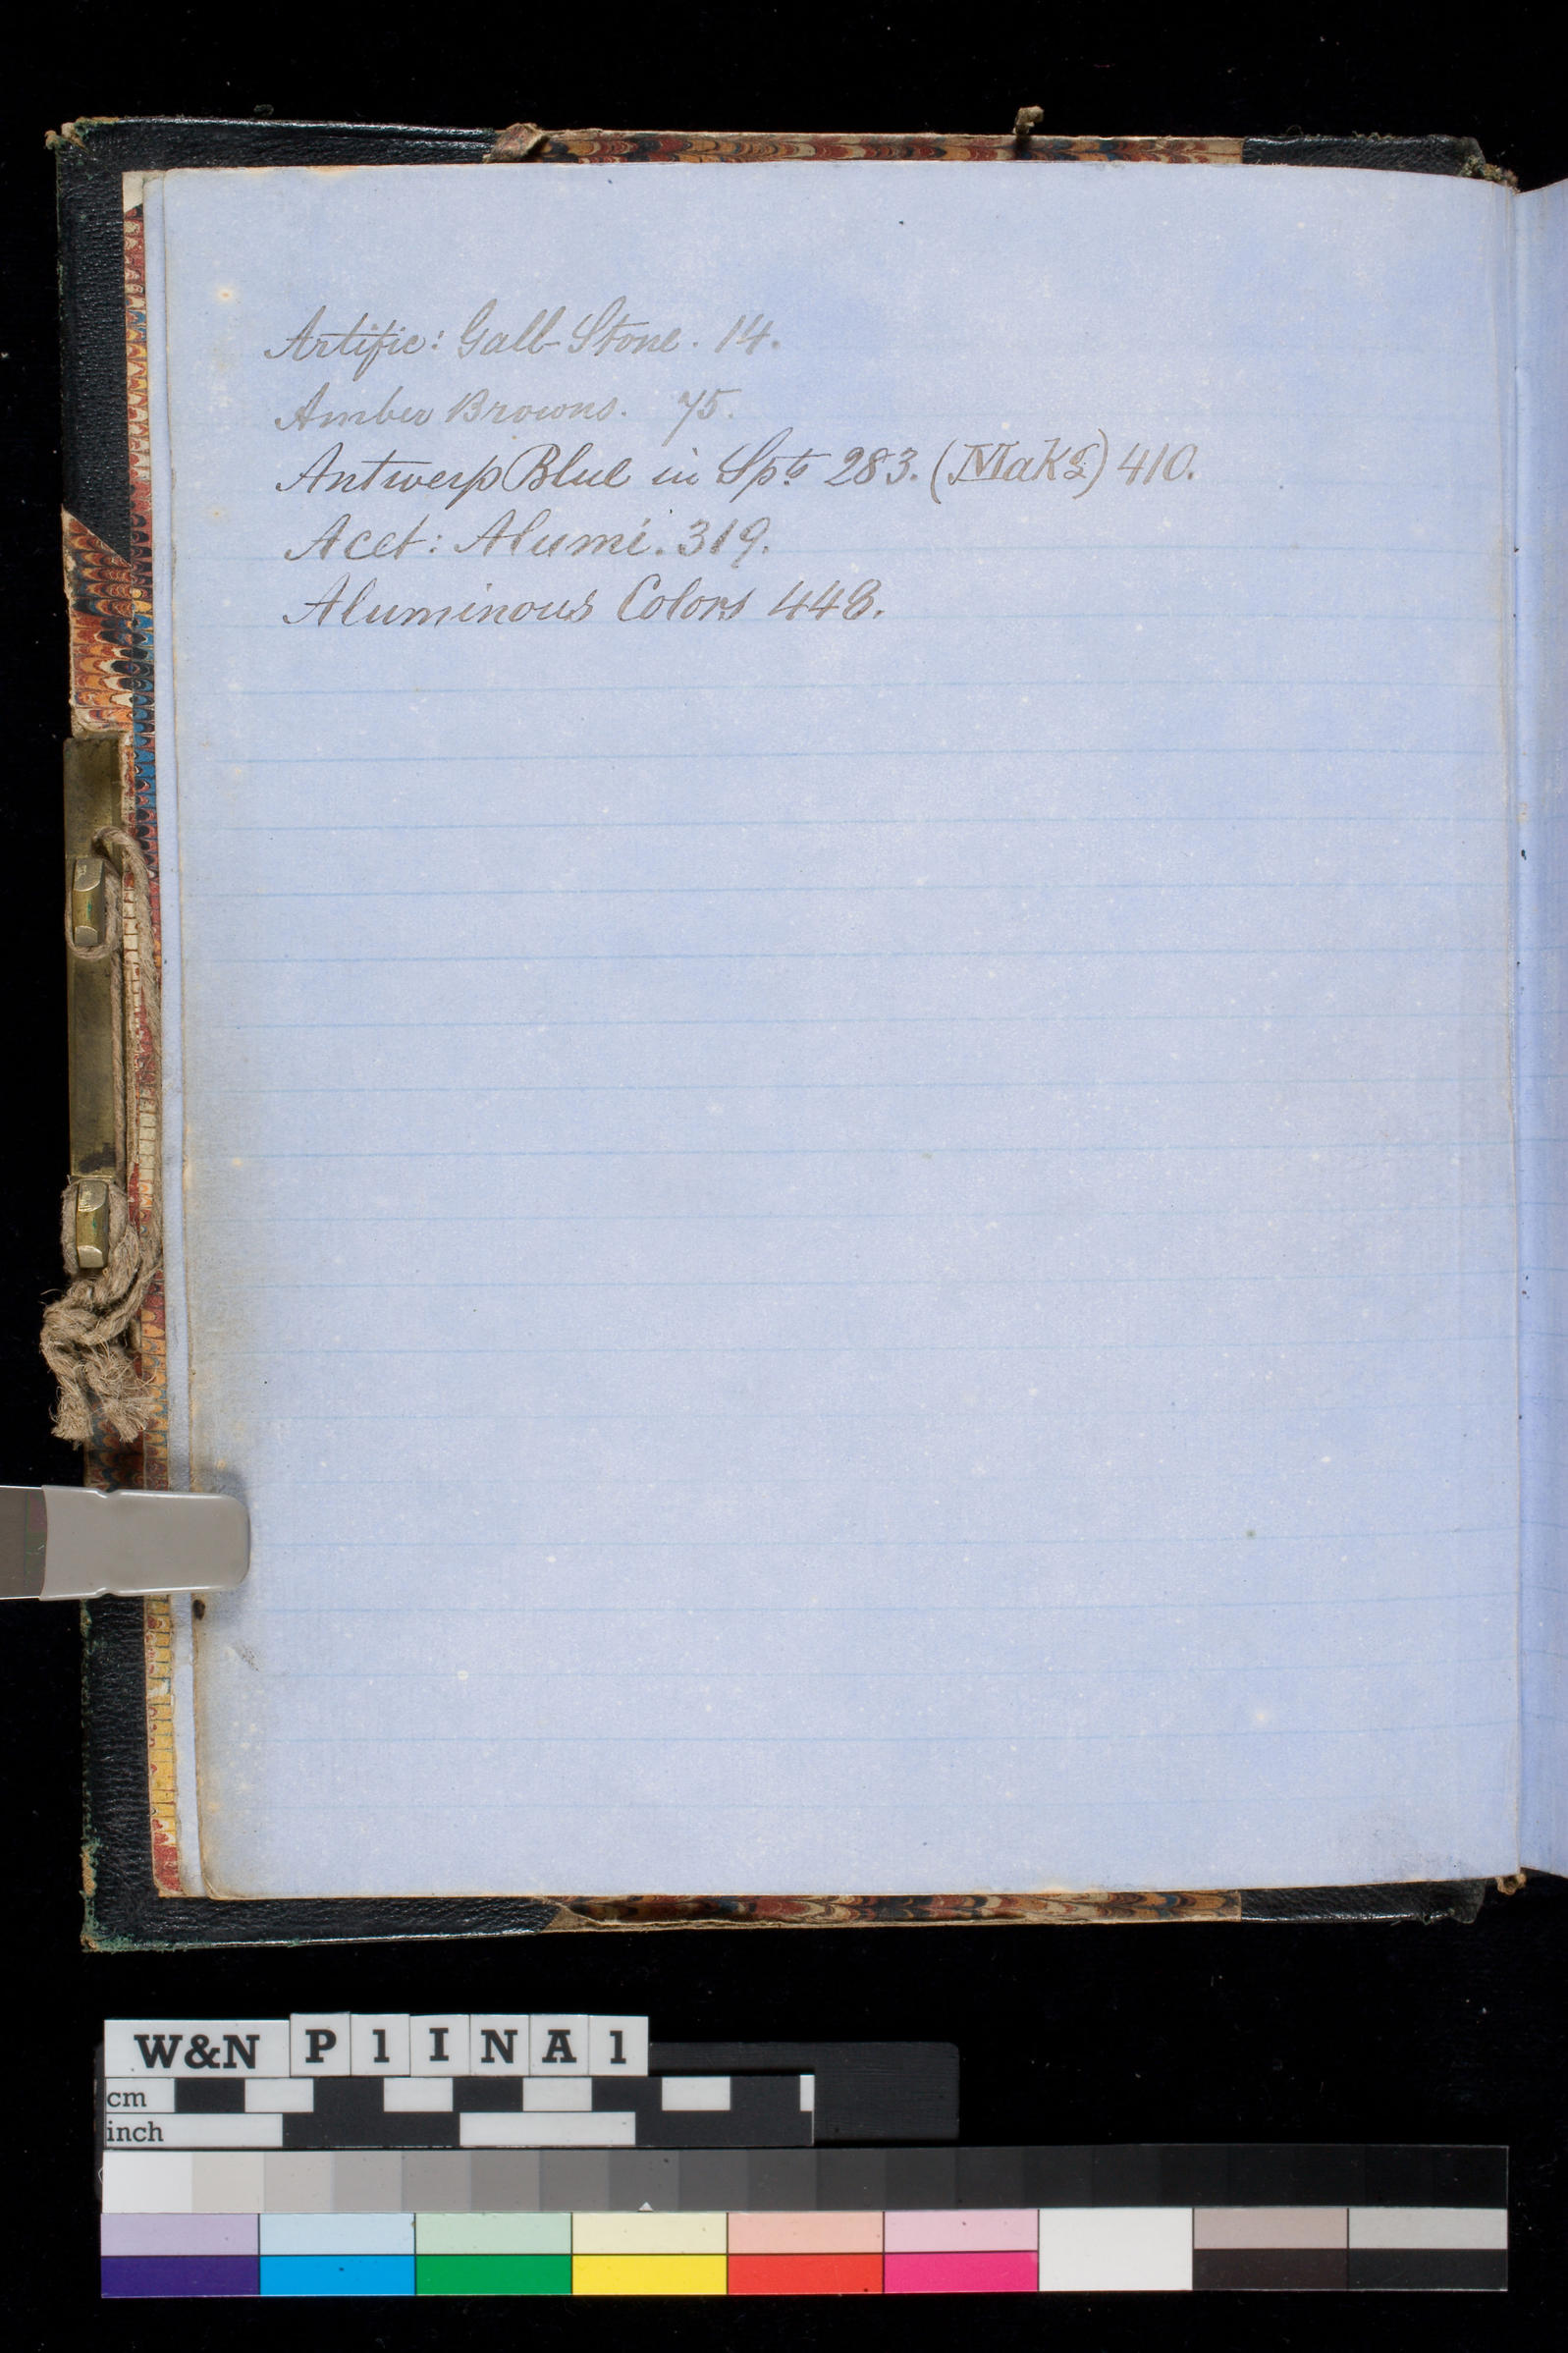 Artific: Gall-Stone. 14.
Amber Browns. 75.
Antwerp Blue in Spts 283. (Makg) 410.
Acet: Alumi. 319.
Aluminous Colors 448.
W&N P1INA1
cm
inch